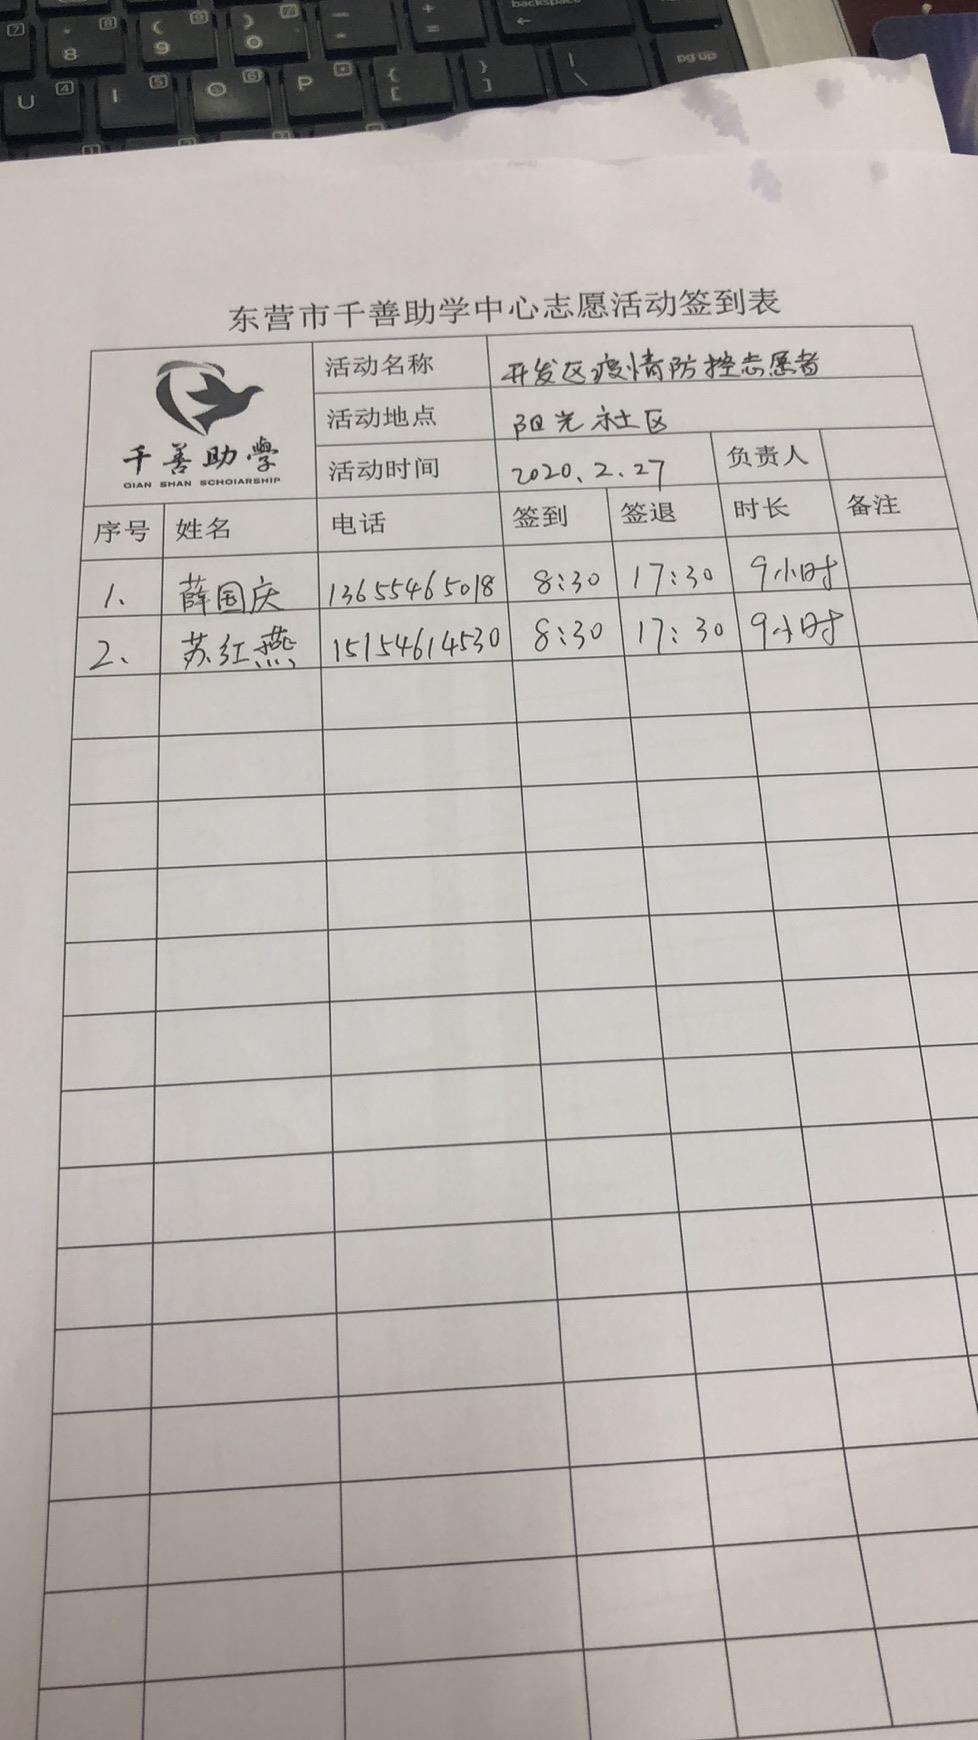 backspace
8 9 0 - + =
U I O P { [ } ] | \ pg up
东营市千善助学中心志愿活动签到表
千善助學
QIAN SHAN SCHOIARSHIP
活动名称 开发区疫情防控志愿者
活动地点 阳光社区
活动时间 2020.2.27 负责人
序号 姓名 电话 签到 签退 时长 备注
1、 薛国庆 13655465018 8:30 17:30 9小时
2、 苏红燕 15154614530 8:30 17:30 9小时